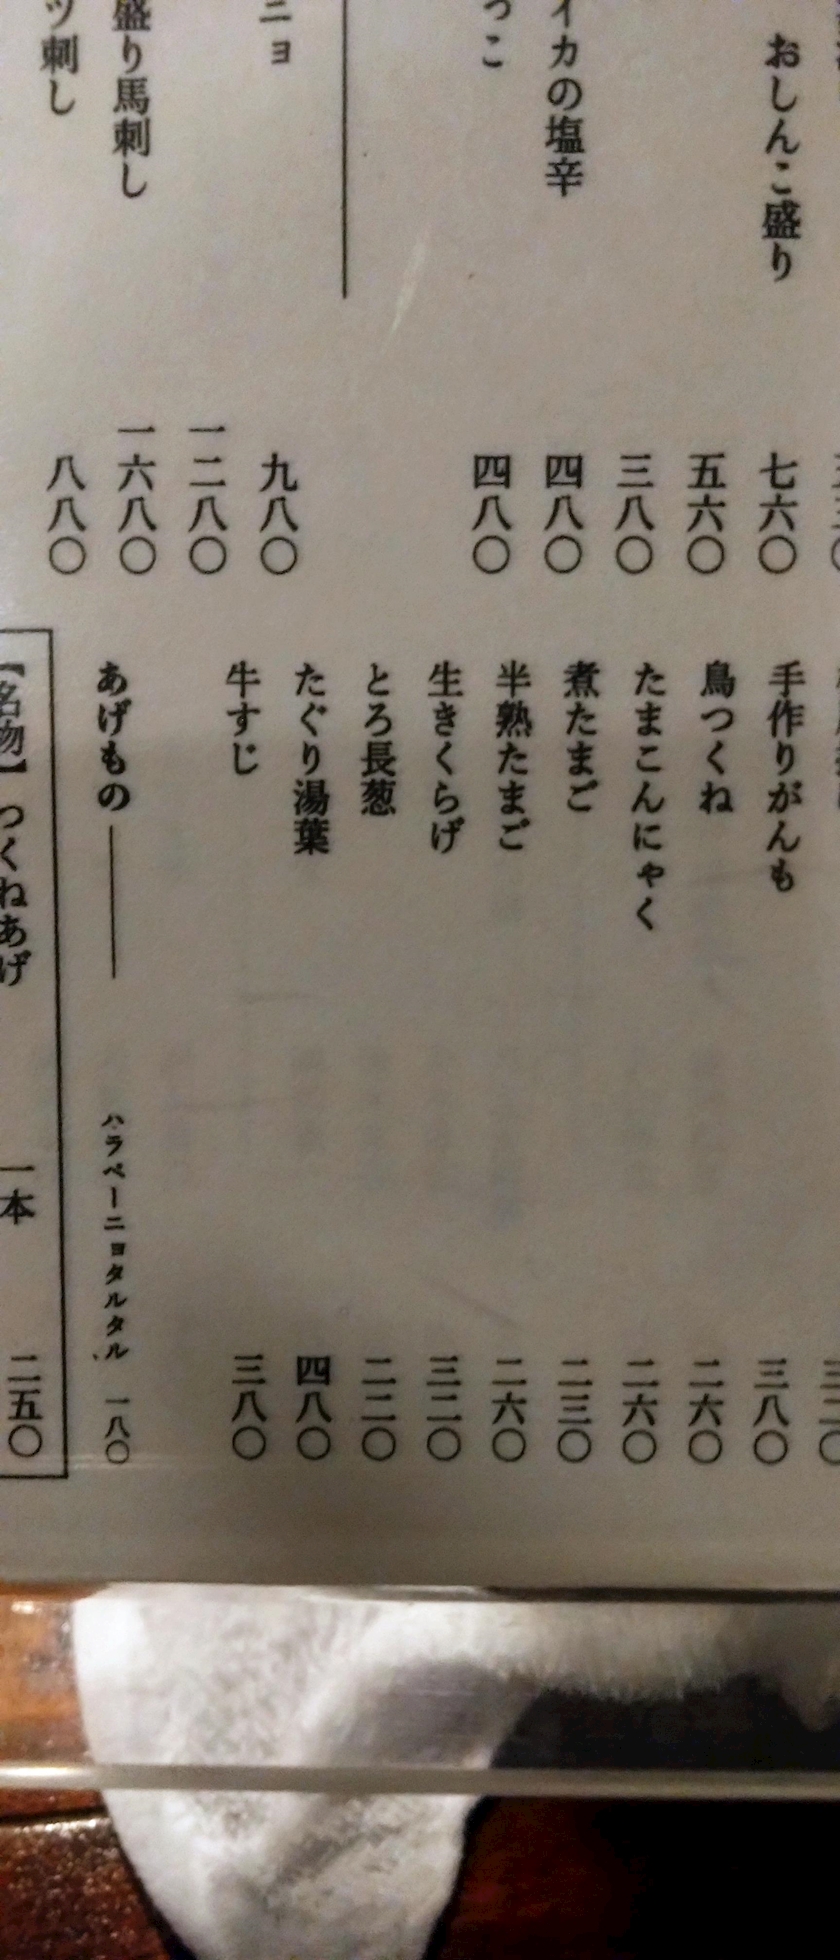 おしんこ盛り 七六〇
五六〇
三八〇
イカの塩辛 四八〇
っこ 四八〇
ニョ 九八〇
一二八〇
盛り馬刺し 一六八〇
ツ刺し 八八〇
手作りがんも 三八〇
鳥つくね 二六〇
たまこんにゃく 二六〇
煮たまご 二三〇
半熟たまご 二六〇
生きくらげ 三二〇
とろ長葱 二二〇
たぐり湯葉 四八〇
牛すじ 三八〇
あげもの ハラペーニョタルタル 一八〇
【名物】つくねあげ 一本 二五〇